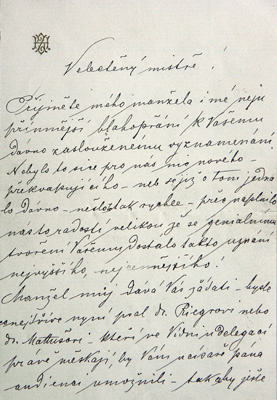 Velectěný mistře!
Přijměte mého manžela i mé neju
přímnější blahopřání k Vašemu
dávno zaslouženému vyznamenání.
Nebylo to sice pro nás nic nového -
překvapujícího - neb se již o tom jedna
lo dávno - nešlo tak rychle - přes naplnilo
nás to radostí velikou že se genialnímu
tvoření Vašemu dostalo takto uznání
nejvyššího - nejcennějšího!
Manžel můj dává Vás žádati - byste
nyní psal dr. Riegrovi nebo
dr. Mattušovi - kteří ve Vídni u delegací
právě meškají, by Vám u císaře pána
audienci umožnili - tak aby ještě